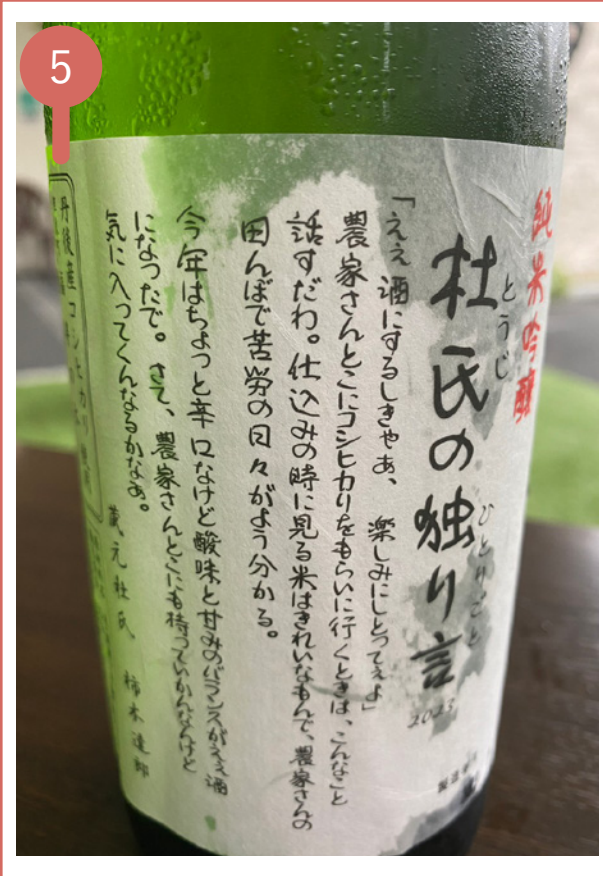 5
純米吟醸
杜氏の独り言
とうじ
ひとりごと
2023
「ええ酒にするしきゃあ、楽しみにしとってえよ」
農家さんとこにコシヒカリをもらいに行くときは、こんなこと
話すだわ。仕込みの時に見る米はきれいなもんで、農家さんの
田んぼで苦労の日々がよう分かる。
今年はちょっと辛口なけど酸味と甘みのバランスがええ酒
になったで。さて、農家さんとこにも持っていかんなんけど
気に入ってくんなるかなあ。
蔵元杜氏 柿木達郎
丹後産コシヒカリ